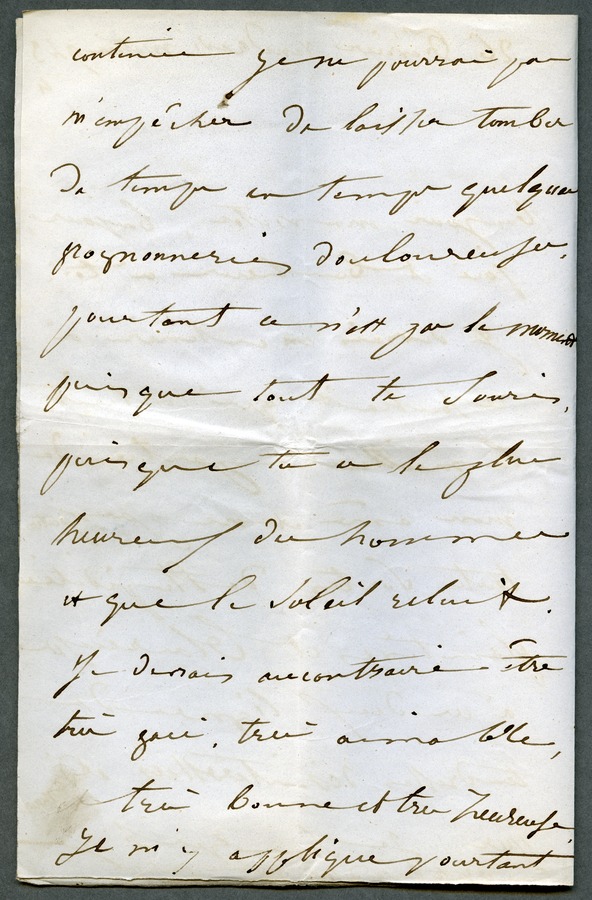 continue je ne pourrai pas
m'empêcher de laisser tomber
de temps en temps quelques
grognonneries douloureuses,
pourtant ce n'est pas le moment
puisque tout te souris,
puisque tu es le plus
heureux des hommes
et que le soleil reluit.
Je devrais au contraire être
très gaie, très aimable,
très bonne et très heureuse
Je m'y applique pourtant